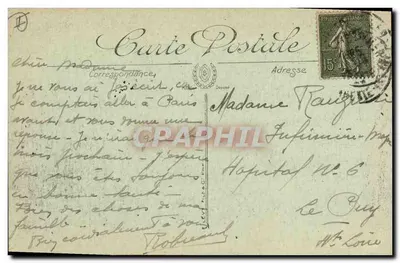 Carte Postale
Correspondance
Adresse
15
Chère Madame
Je ne vous ai pas écrit, car
je comptais aller à Paris
avant, et vous donne une
réponse - Je n'irai que le
mois prochain - J'espère
que vous êtes toujours
en bonne santé
choses de ma
famille
Bien cordialement à vous
Madame
Infirmière-Major
Hôpital No 6
Le Puy
Hte Loire
CPAPHIL.com